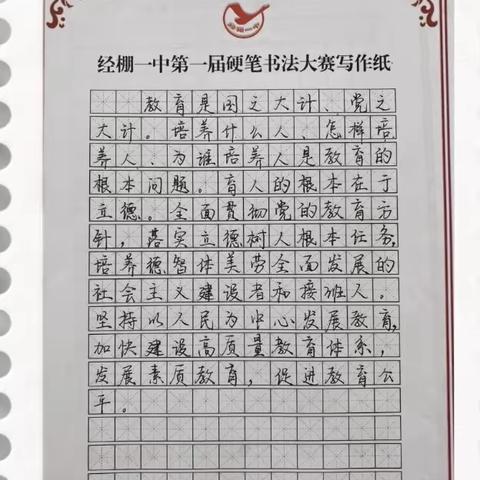 经棚一中
经棚一中第一届硬笔书法大赛写作纸
教育是国之大计、党之
大计。培养什么人、怎样培
养人、为谁培养人是教育的
根本问题。育人的根本在于
立德。全面贯彻党的教育方
针，落实立德树人根本任务,
培养德智体美劳全面发展的
社会主义建设者和接班人。
坚持以人民为中心发展教育,
加快建设高质量教育体系，
发展素质教育，促进教育公
平。